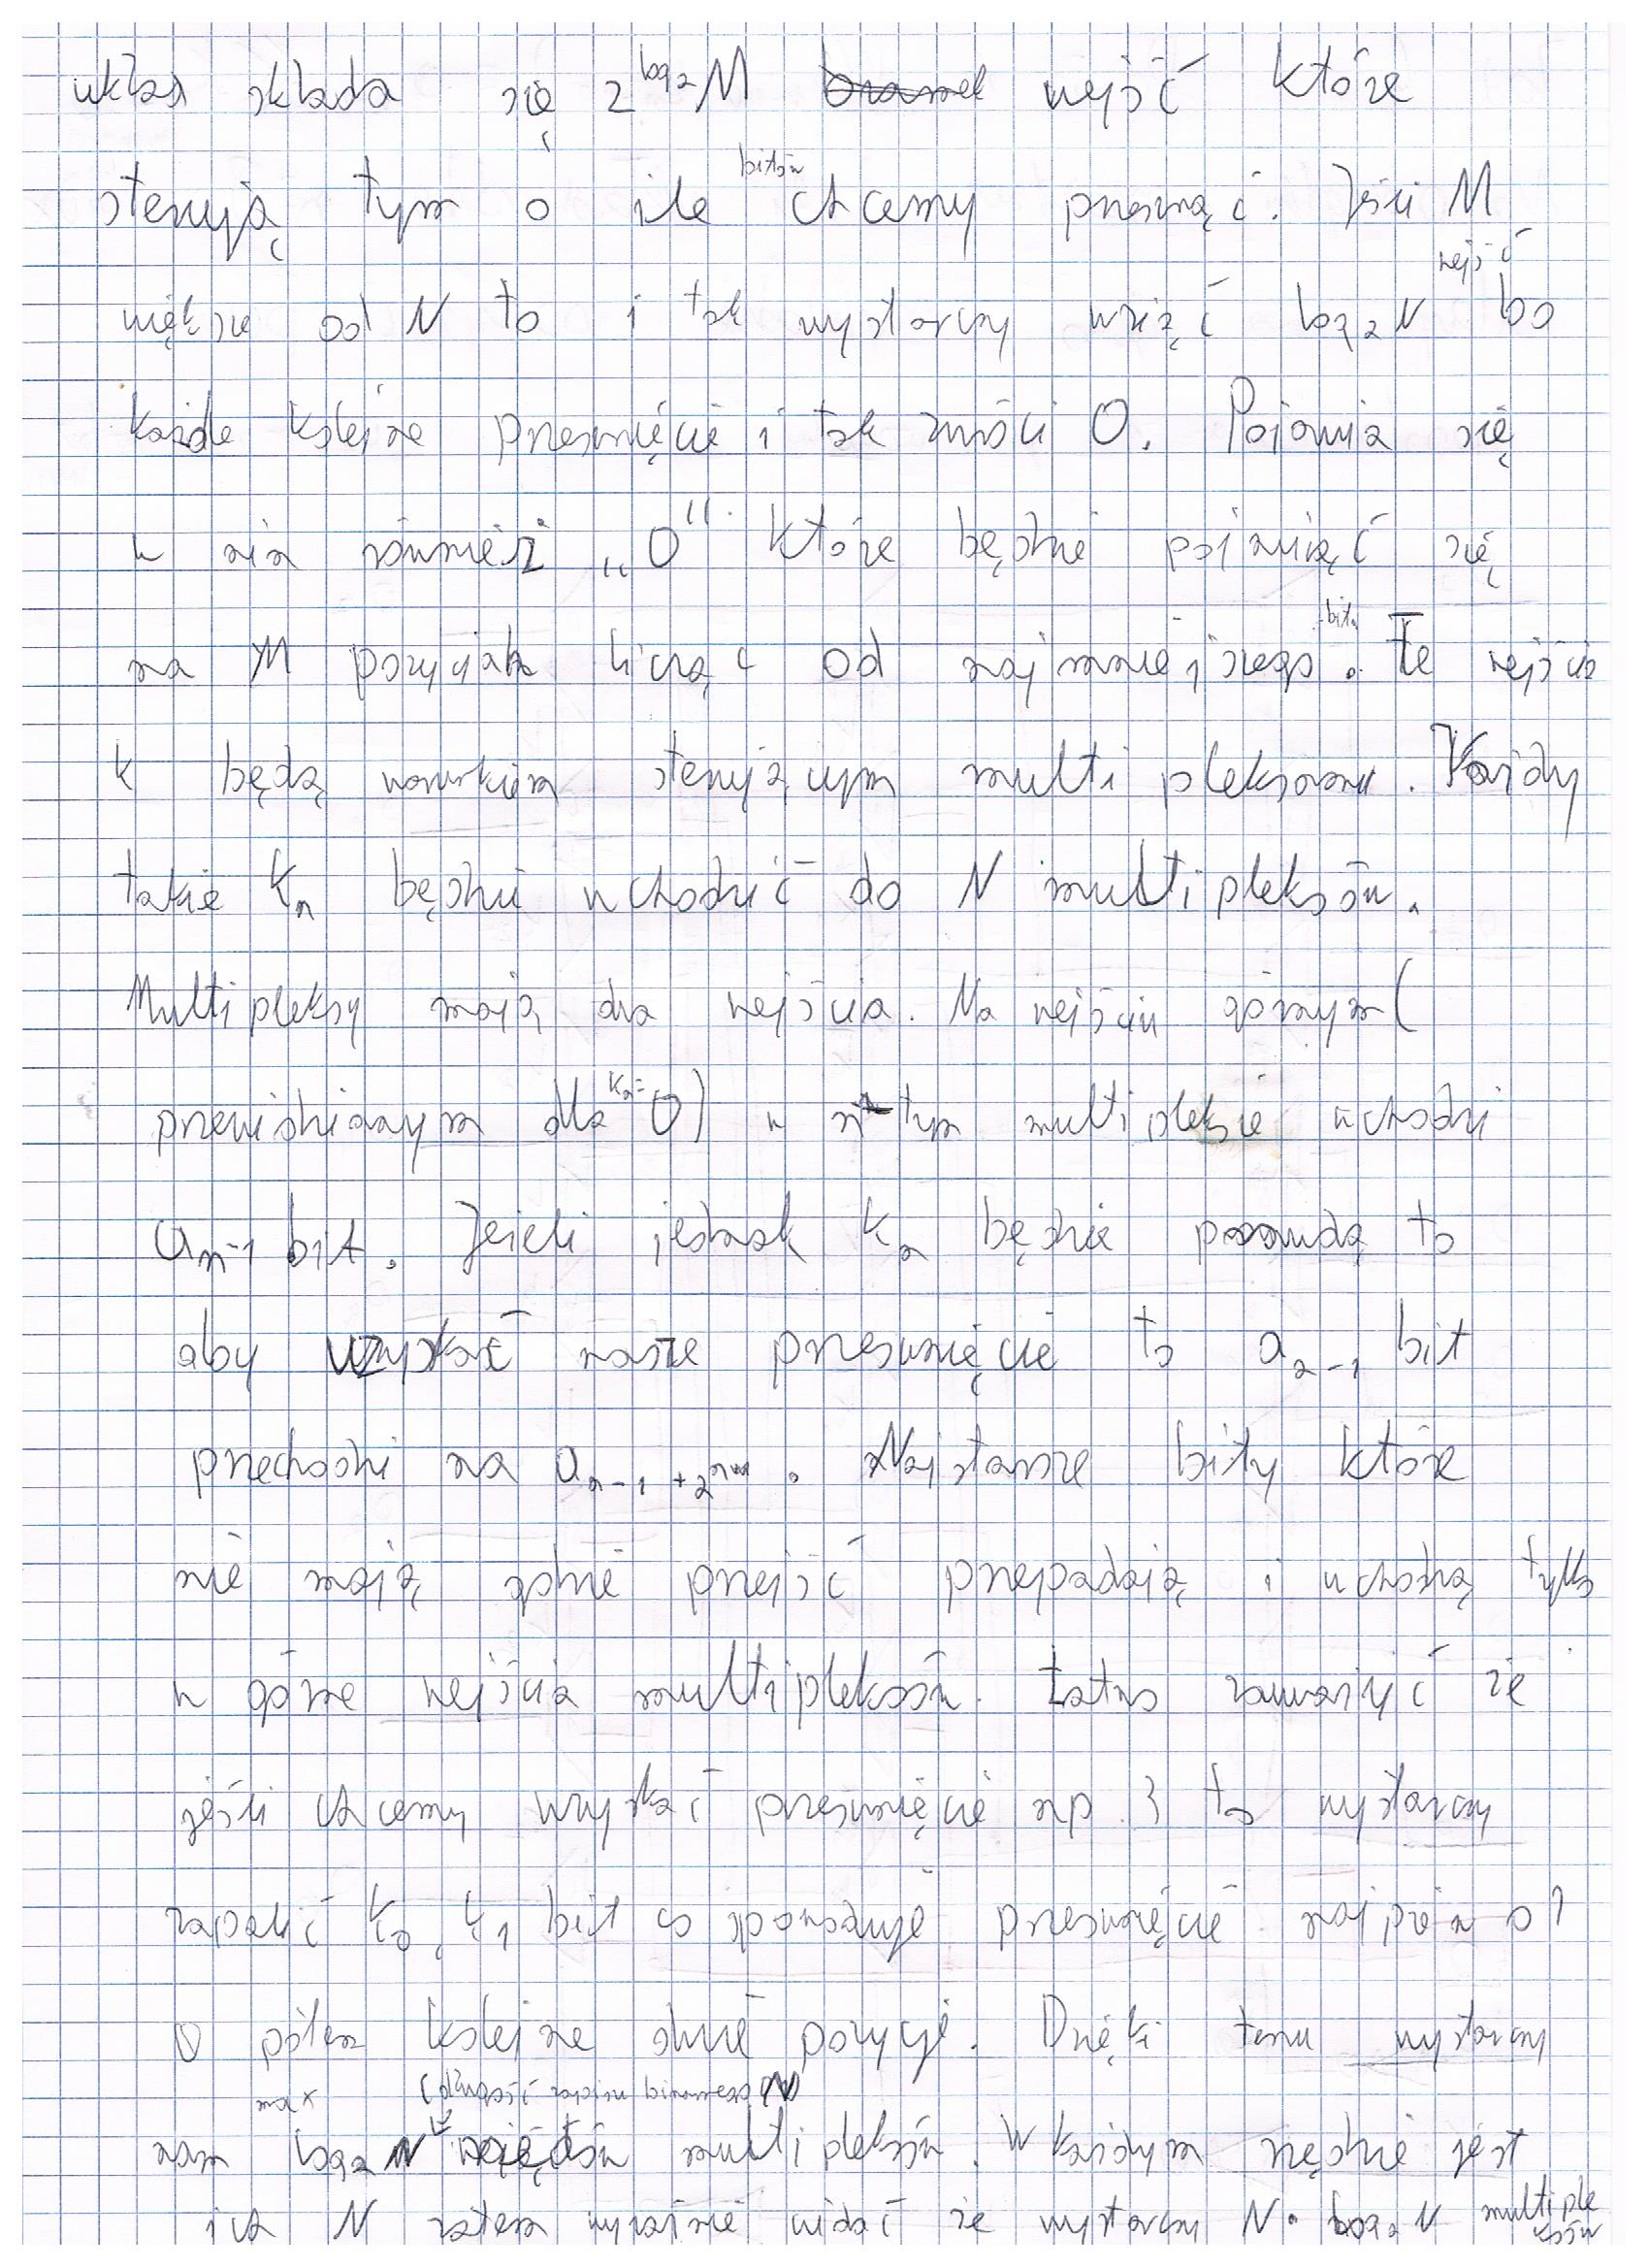 układ składa się 2^log₂M wejść które
sterują tym o ile bitów chcemy przesunąć. Jeśli M
większe od N to i tak wystarczy wziąć log₂N wejść bo
każde kolejne przesunięcie i tak zwróci 0. Pojawia się
w nim również „0" które będzie pojawiać się
na M pozycjach licząc od najmniejszego bitu. Te wejścia
k będą warunkiem sterującym multipleksorem. Każdy
takie kₙ będzie wchodzić do N multipleksów.
Multipleksy mają dwa wejścia. Na wejściu górnym (
przewidzianym dla kₙ=0) w n-tym multipleksie wchodzi
aₙ₋₁ bit. Jeżeli jednak kₙ będzie prawdą to
aby uzyskać nasze przesunięcie to aₙ₋₁ bit
przechodzi na aₙ₋₁₊₂. Najstarsze bity które
nie mają gdzie przejść przepadają i wchodzą tylko
w górne wejścia multipleksów. Łatwo zauważyć że
jeśli chcemy uzyskać przesunięcie np. 3 to wystarczy
zapalić k₀, k₁ bit co spowoduje przesunięcie najpierw o 1
o potem kolejne dwie pozycje. Dzięki temu wystarczy
nam max log₂N (długość zapisu binarnego N) rzędów multipleksów. W każdym rzędzie jest
ich N zatem wyraźnie widać że wystarczy N · log₂N multipleksów